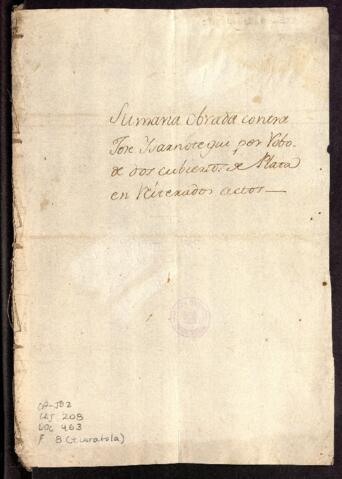 Sumaria obrada contra
Jose por Robo
de dos cubiertos de Plata
en Reiterados actos
CA-JD2
CAJ 208
DOC 463
F 8 (+ caratula)